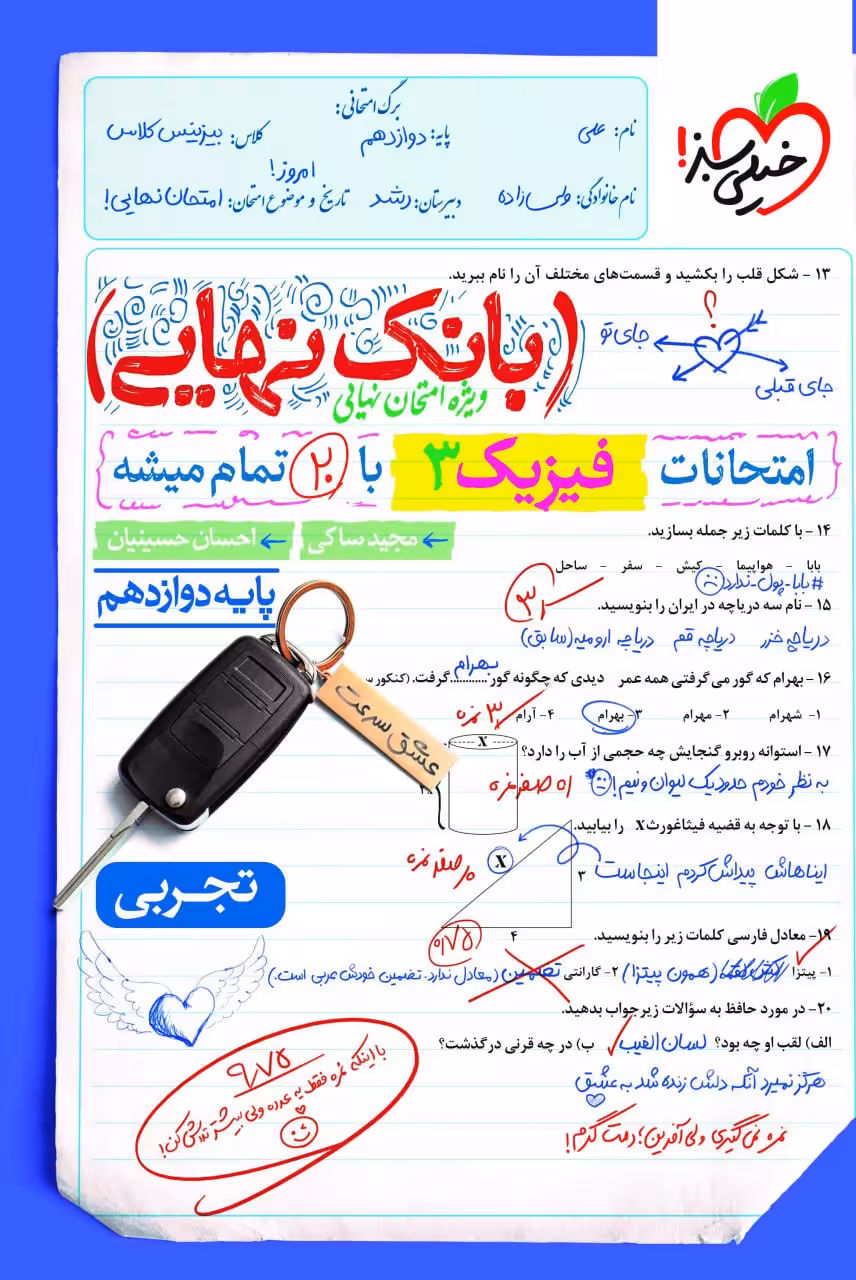 خیلی سبز!
برگ امتحانی:
نام: علی
پایه: دوازدهم
کلاس: بیزینس کلاس
نام خانوادگی: ولی‌زاده
دبیرستان: رشد
تاریخ و موضوع امتحان: امروز! امتحان نهایی!
۱۳ - شکل قلب را بکشید و قسمت‌های مختلف آن را نام ببرید.
؟
جای تو
جای قبلی
(بانک نهایی)
ویژه امتحان نهایی
امتحانات فیزیک ۳ با ۲۰ تمام میشه
۱۴ - با کلمات زیر جمله بسازید.
مجید ساکی
احسان حسینیان
بابا - هواپیما - کیش - سفر - ساحل
#بابا-پول-ندارد
پایه دوازدهم
۱۵ - نام سه دریاچه در ایران را بنویسید.
دریاچه خزر دریاچه قم دریاچه ارومیه (سابق)
۱۶ - بهرام که گور می‌گرفتی همه عمر دیدی که چگونه گور بهرام گرفت. (کنکور
۱- شهرام ۲- مهرام ۳- بهرام ۴- آرام
نمره
عشق سرعت
X
۱۷ - استوانه روبرو گنجایش چه حجمی از آب را دارد؟
به نظر خودم حدود یک لیوان و نیم!
صفر نمره
۱۸ - با توجه به قضیه فیثاغورث X را بیابید.
X
ایناهاش پیداش کردم اینجاست
۳
صفر نمره
۴
تجربی
۱۹- معادل فارسی کلمات زیر را بنویسید.
۰/۷۵
۱- پیتزا (همون پیتزا) ۲- گارانتی تضمین (معادل ندارد. تضمین خودش عربی است.)
۲۰- در مورد حافظ به سؤالات زیر جواب بدهید.
الف) لقب او چه بود؟ لسان الغیب ب) در چه قرنی درگذشت؟
هرگز نمیرد آنکه دلش زنده شد به عشق
نمره نمی‌گیری ولی آفرین؛ دمت گرم!
۹/۷۵
با اینکه نمره فقط یه عدده ولی بیشتر تلاش کن!